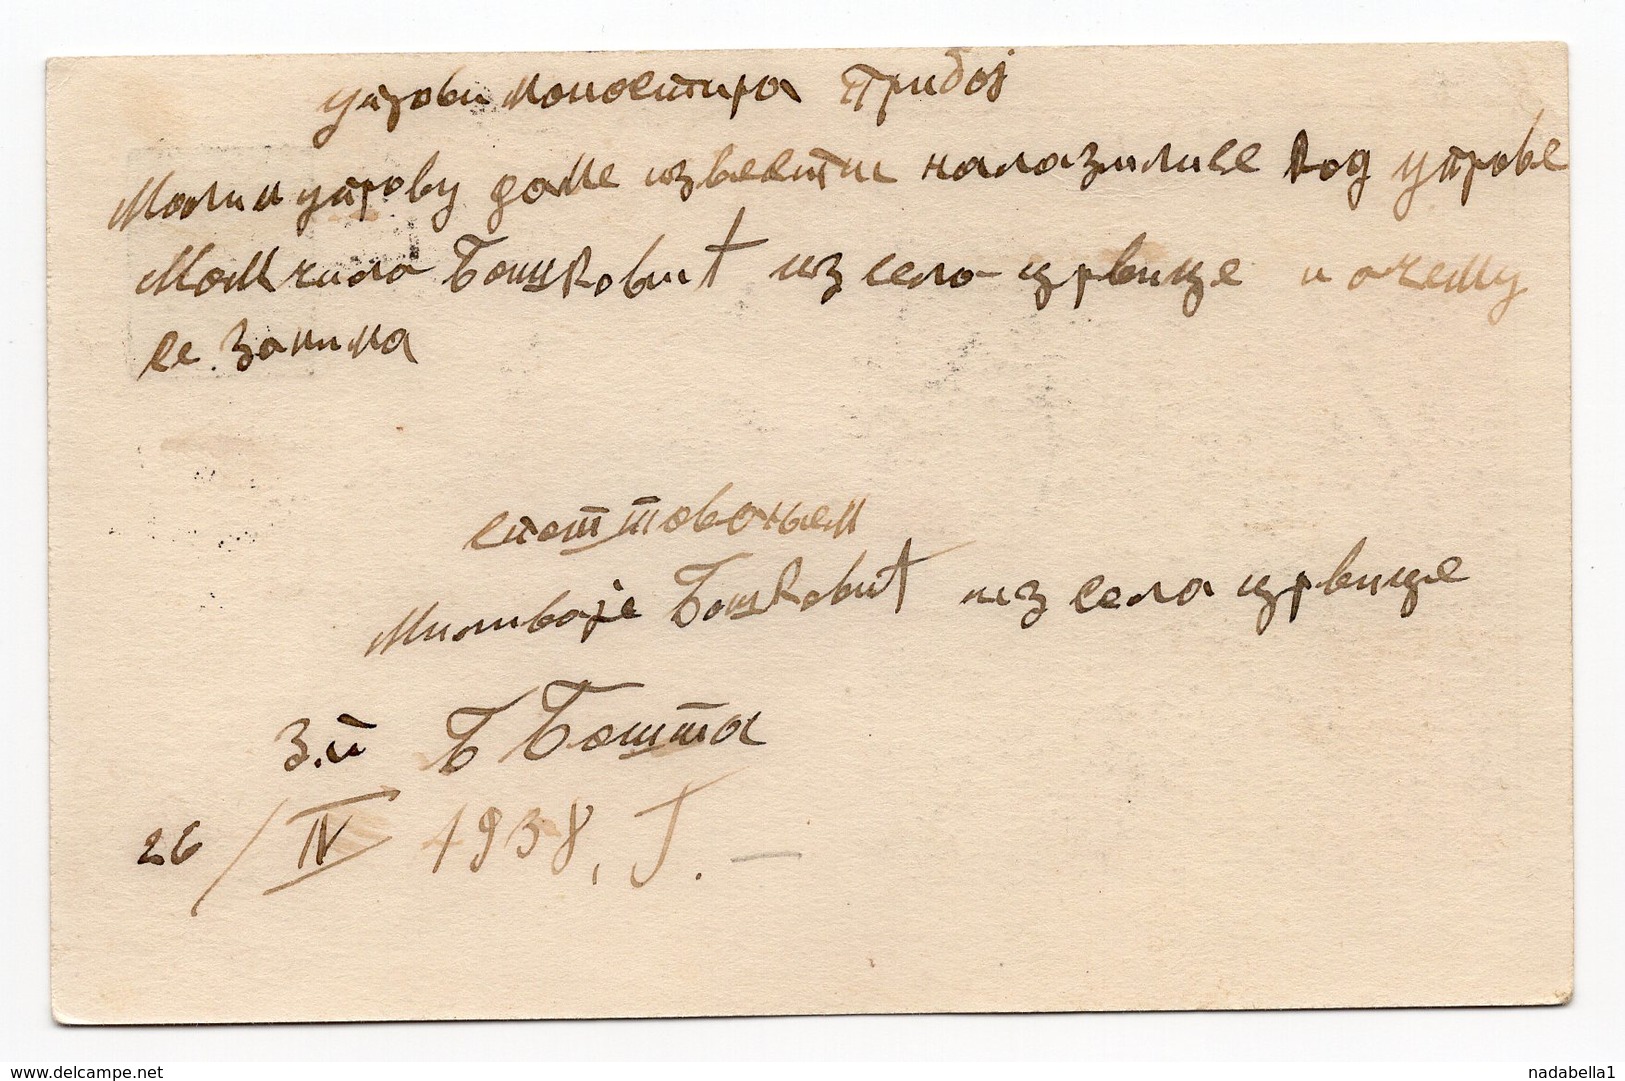 управи манастира Прибој
Молим управу даме известити налазилисе код управе
Момчило Бошковић из село црвице и очему
се занима
спет товањем
Миливоје Бошковић из села црвице
З.П Б Бошта
26/IV 1938, г.
www.delcampe.net
nadabella1